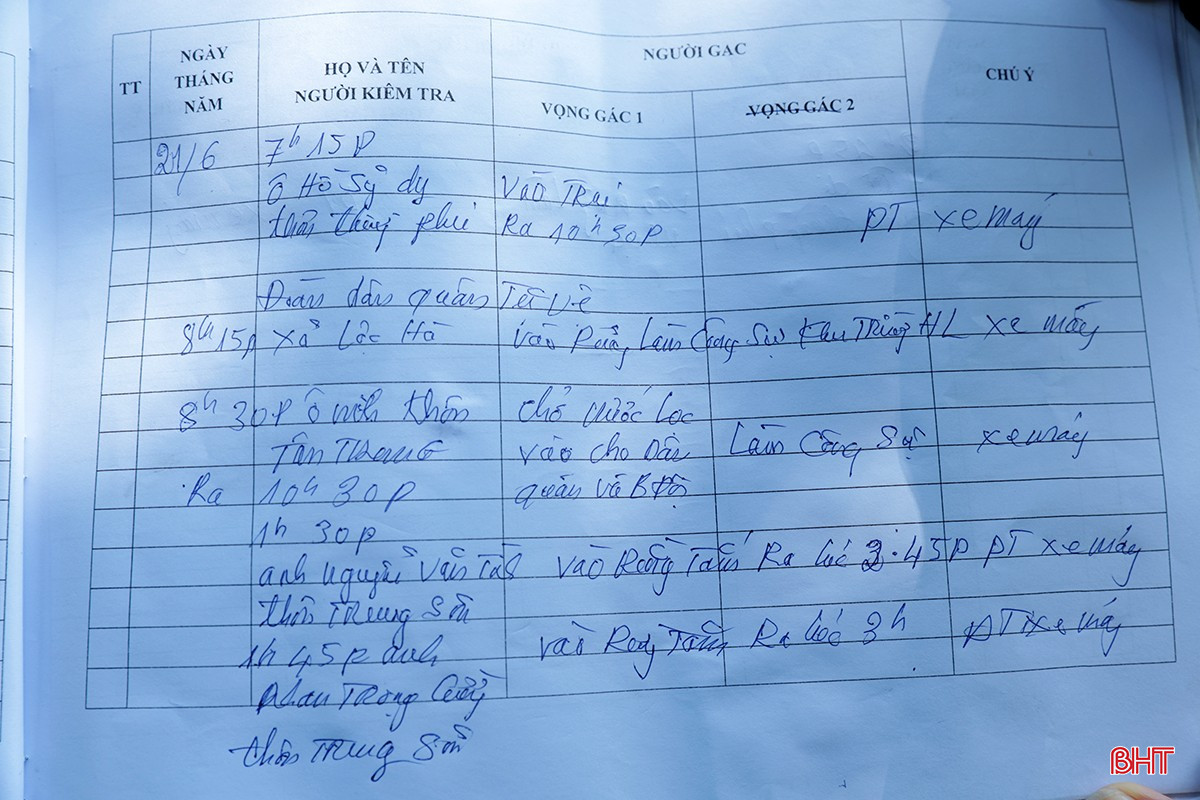 TT
NGÀY THÁNG NĂM
HỌ VÀ TÊN NGƯỜI KIỂM TRA
NGƯỜI GÁC
CHÚ Ý
VỌNG GÁC 1
VỌNG GÁC 2
21/6 7h 15p
Ô Hồ Sỹ dy Vào Trại
thôn phú Ra 10h 30p PT xe máy
Đoàn dân quân Tự vệ
8h 15p xã Lộc Hà vào Làm Công Sự xe máy
8h 30p Ô thôn chở nước lọc
Tân Thượng vào cho Dân Làm Công Sự xe máy
Ra 10h 30p quân và
1h 30p
anh nguyễn văn vào Rừng Ra lúc 45p PT xe máy
thôn Trung Sơn
1h 45p anh vào Ra lúc 3h PT xe máy
Phan Trọng
thôn Trung Sơn
BHT